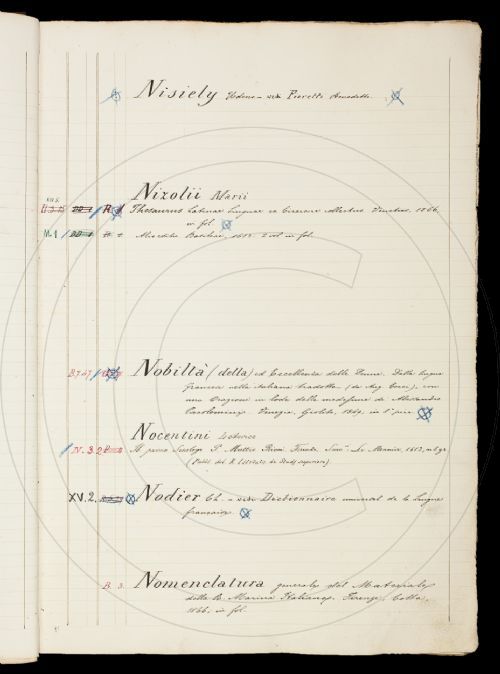 Nisiely Udeno - vedi Fioretti Benedetto.
Nizolii Marii
XII.5.
R 1 Thesaurus Latinae linguae ex Cicerone Venetiae, 1566,
in fol.
M.1 Basileae, 2 vol in fol.
B.7.47. Nobiltà (della) ed Eccellenza delle Donne. Dalla lingua
francese nella italiana tradotta (da), con
una Orazione in lode delle medesime di Alessandro
Piccolomini. Venezia, Giolito, in 8° picc.
Nocentini Lodovico
N. 3. 2 Il primo Sinologo P. Matteo Ricci. Firenze, Succ. Le Monnier, 1882, in 8 gr.
(Pubbl. del R. Istituto di Studi superiori)
XV.2. Nodier Ch. - vedi Dictionnaire universel de la langue
française.
B. 3. Nomenclatura generale del Materiale
della R. Marina Italiana. Firenze, Cotta,
1866, in fol.